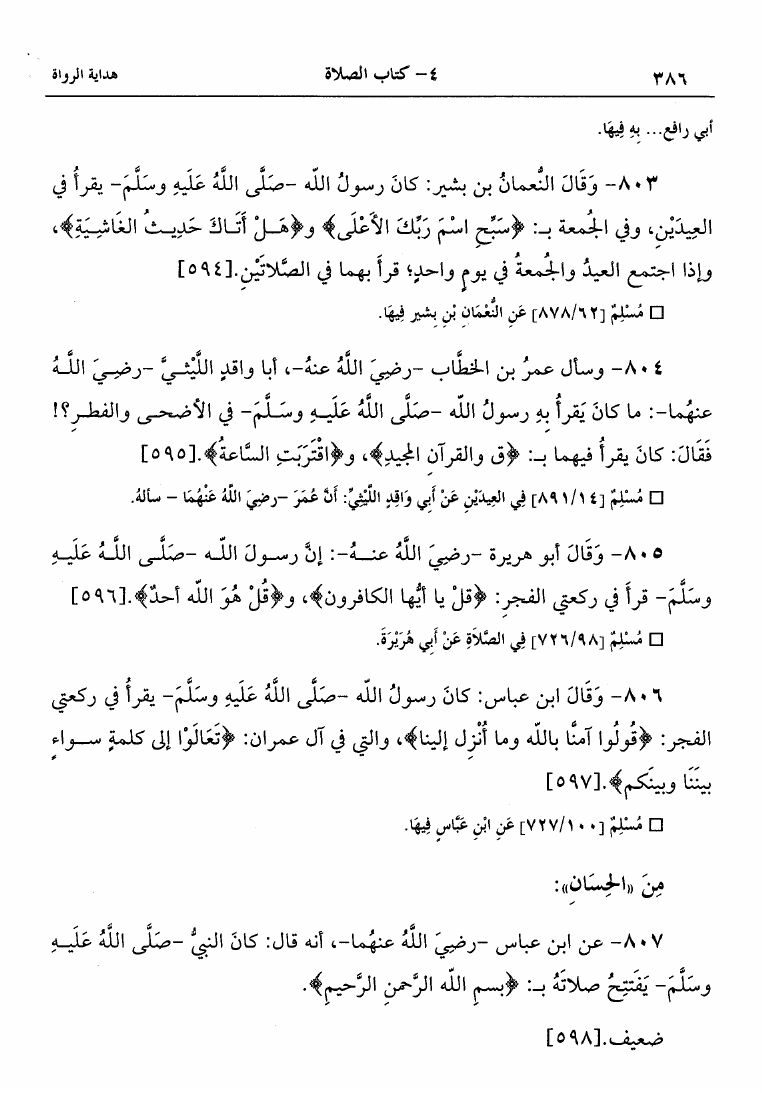 ٣٨٦ ٤- كتاب الصلاة هداية الرواة
أبي رافع... بِهِ فِيهَا.
٨٠٣- وَقَالَ النُّعمانُ بن بشير: كانَ رسولُ الله -صَلَّى اللَّهُ عَلَيهِ وسَلَّمَ- يقرأُ في
العِيدَيْنِ، وفي الجُمعة بـ: ﴿سَبِّحِ اسْمَ رَبِّكَ الأَعْلَى﴾ و﴿هَـلْ أَتَـاكَ حَدِيـثُ الغَاشِـيَةِ﴾،
وإذا اجتمع العيدُ والجُمعةُ في يومٍ واحدٍ؛ قرأَ بهما في الصَّلاتَيْنِ.[٥٩٤]
□ مُسْلِمٌ [٨٧٨/٦٢] عَنِ النُّعْمَانِ بْنِ بشير فِيهَا.
٨٠٤- وسأل عمرُ بن الخطَّاب -رضِيَ اللَّهُ عنهُ-، أبا واقدٍ اللَّيْثـيَّ -رضـِيَ اللَّـهُ
عنهُما-: ما كانَ يَقرأُ بِهِ رسولُ الله -صَلَّى اللَّهُ عَلَيـهِ وسَـلَّمَ- في الأضحـى والفطـرِ؟!
فَقَالَ: كانَ يقرأُ فيهما بـ: ﴿ق والقرآنِ المجيدِ﴾، و﴿اقْتَرَبَتِ السَّاعةُ﴾.[٥٩٥]
□ مُسْلِمٌ [٨٩١/١٤] فِي العِيدَيْنِ عَنْ أَبِي وَاقِدٍ اللَّيْثِيِّ: أَنَّ عُمَرَ -رَضِيَ اللَّهُ عَنْهُمَا - سألهُ.
٨٠٥- وَقَالَ أبو هريرة -رضِيَ اللَّهُ عنـهُ-: إنَّ رسـولَ اللّـه -صَلَّـى اللَّـهُ عَلَيـهِ
وسَلَّمَ- قرأَ في ركعتي الفجرِ: ﴿قلْ يا أيُّها الكافرون﴾، و﴿قُلْ هُوَ الله أحدٌ﴾.[٥٩٦]
□ مُسْلِمٌ [٧٢٦/٩٨] فِي الصَّلاَةِ عَنْ أَبِي هُرَيْرَةَ.
٨٠٦- وَقَالَ ابن عباس: كانَ رسولُ الله -صَلَّى اللَّهُ عَلَيهِ وسَلَّمَ- يقرأُ في ركعتي
الفجر: ﴿قُولُوا آمنَّا بالله وما أُنْزِل إلينا﴾، والتي في آل عمران: ﴿تَعَالَوْا إلى كلمةٍ سـواءٍ
بينَنَا وبينَكم﴾.[٥٩٧]
□ مُسْلِمٌ [٧٢٧/١٠٠] عَنِ ابْنِ عَبَّاسٍ فِيهَا.
مِنَ «الحِسَانِ»:
٨٠٧- عن ابن عباس -رضِيَ اللَّهُ عنهُما-، أنه قال: كانَ النبيُّ -صَلَّى اللَّهُ عَلَيـهِ
وسَلَّمَ- يَفتَتِحُ صلاتَهُ بـ: ﴿بسمِ الله الرَّحمنِ الرَّحيمِ﴾.
ضعيف.[٥٩٨]